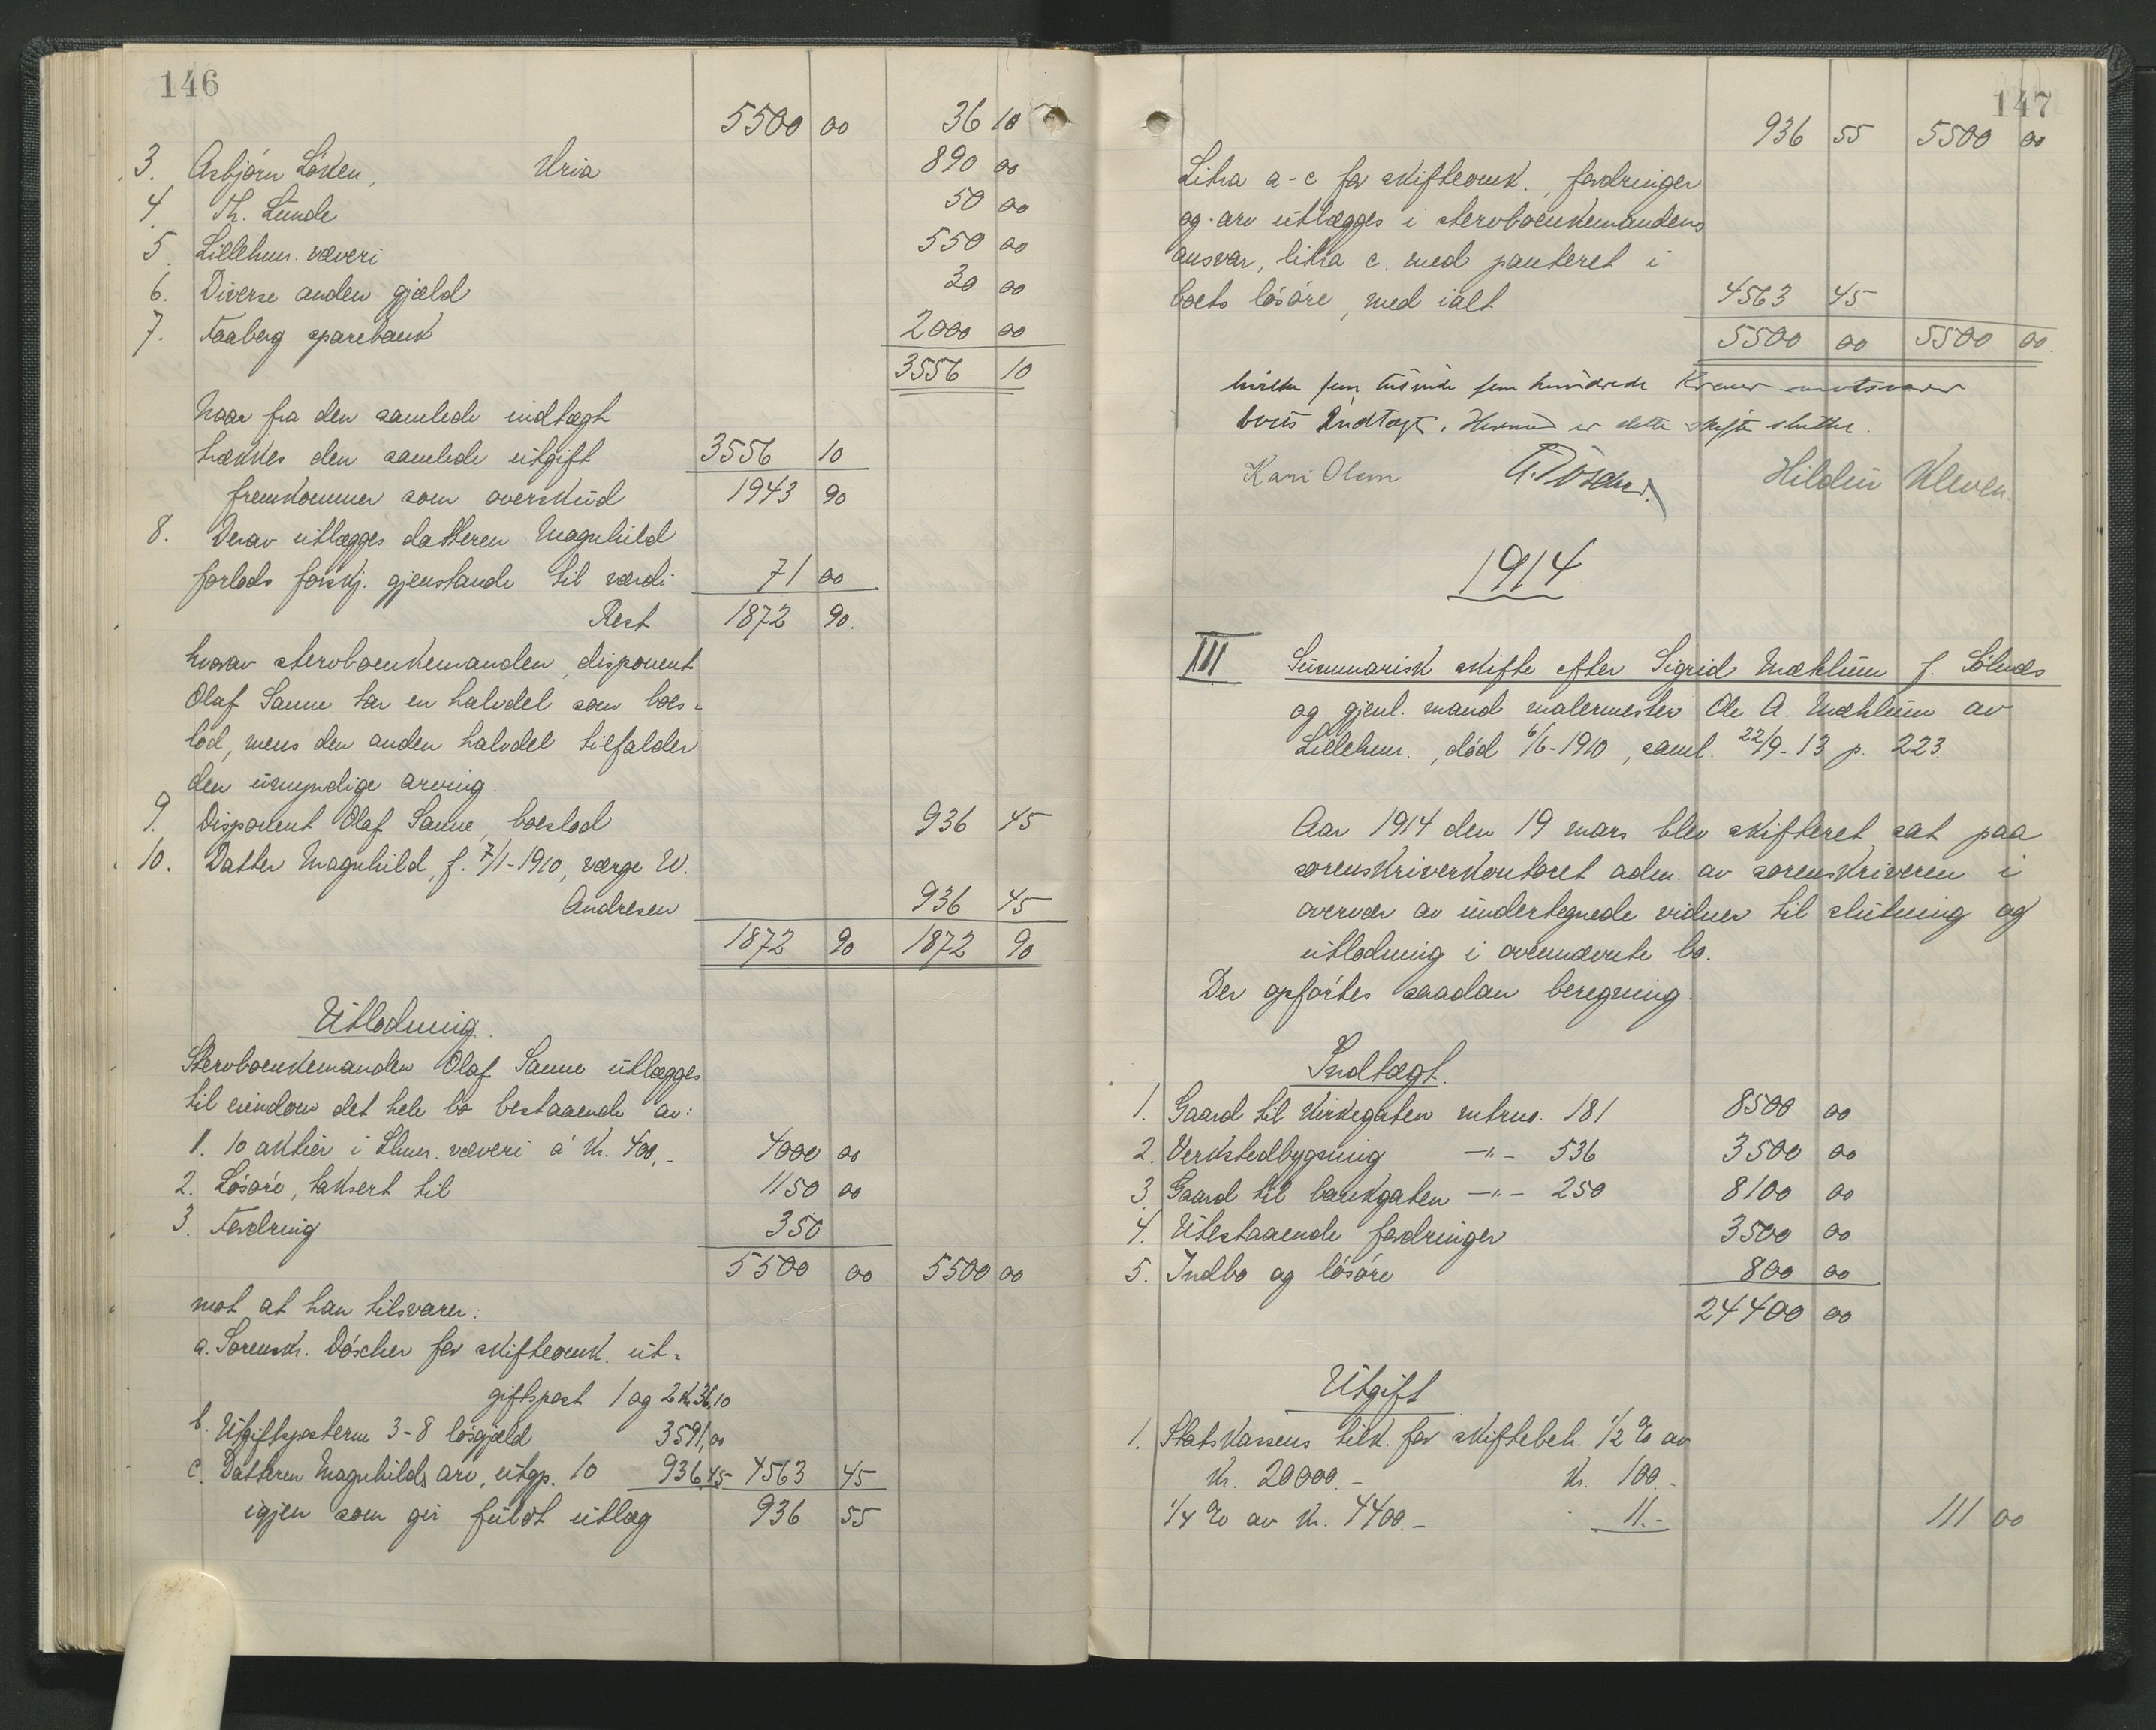 146
5500 00 36 10
3. Asbjørn Löken, Uria 890 00
4. Th. Lunde 50 00
5. Lillehmr. væveri 550 00
6. Diverse anden gjæld 30 00
7. Faaberg sparebank 2000 00
3556 10
Naar fra den samlede indtægt
trækkes den samlede utgift 3556 10
fremkommer som overskud 1943 90
8. Derav utlægges datteren Magnhild
forlods forskj. gjenstande til værdi 71 00
Rest 1872 90.
hvorav stervboenkemanden, disponent
Olaf Sanne tar en halvdel som boes-
lod, mens den anden halvdel tilfalder
den umyndige arving.
9. Disponent Olaf Sanne, boeslod 936 45
10. Datter Magnhild, f. 7/1-1910, værge W.
Andresen 936 45
1872 90 1872 90
Utlodning.
Stervboenkemanden Olaf Sanne utlægges
til eiendom det hele bo bestaaende av:
1. 10 aktier i Lhmr. væveri á Kr. 400,- 4000 00
2. Lösöre, taksert til 1150 00
3. Fordring 350
5500 00 5500 00
mot at han tilsvarer:
a. Sorenskr. Döscher for skifteomk. ut-
giftspost 1 og 2 Kr. 36,10
b. Utgiftsposterne 3-8 løsgjæld 3591,00
c. Datteren Magnhilds arv, utgp. 10 936 45 4563 45
igjen som gir fuldt utlæg 936 55
147
936 55 5500 00
Litra a-c for skifteomk., fordringer
og arv utlægges i stervboenkemandens
ansvar, litra c. med panteret i
boets lösöre, med ialt 4563 45
5500 00 5500 00.
hvilke fem tusinde fem hundrede Kroner motsvarer
boets Indtægt. Hermed er dette skifte sluttet.
Kari Olsen Döscher. Hildur Kleven.
1914
III Summarisk skifte efter Sigrid Mæhlum f.
og gjenl. mand malermester Ole A. Mæhlum av
Lillehmr., död 6/6-1910, saml. 22/9-13 p. 223.
Aar 1914 den 19 mars blev skifteret sat paa
sorenskriverkontoret adm. av sorenskriveren i
overvær av undertegnede vidner til slutning og
utlodning i ovennævnte bo.
Der opførtes saadan beregning.
Indtægt.
1. Gaard til Kirkegaten mtrno. 181 8500 00
2. Verkstedbygning -"- 536 3500 00
3. Gaard til bankgaten -"- 250 8100 00
4. Utestaaende fordringer 3500 00
5. Indbo og lösöre 800 00
24400 00
Utgift
1. Statskassens tilk. for skiftebeh. 1/2 % av
Kr. 20000.- Kr. 100.-
1/4 % av Kr. 4400.- 11.- 111 00